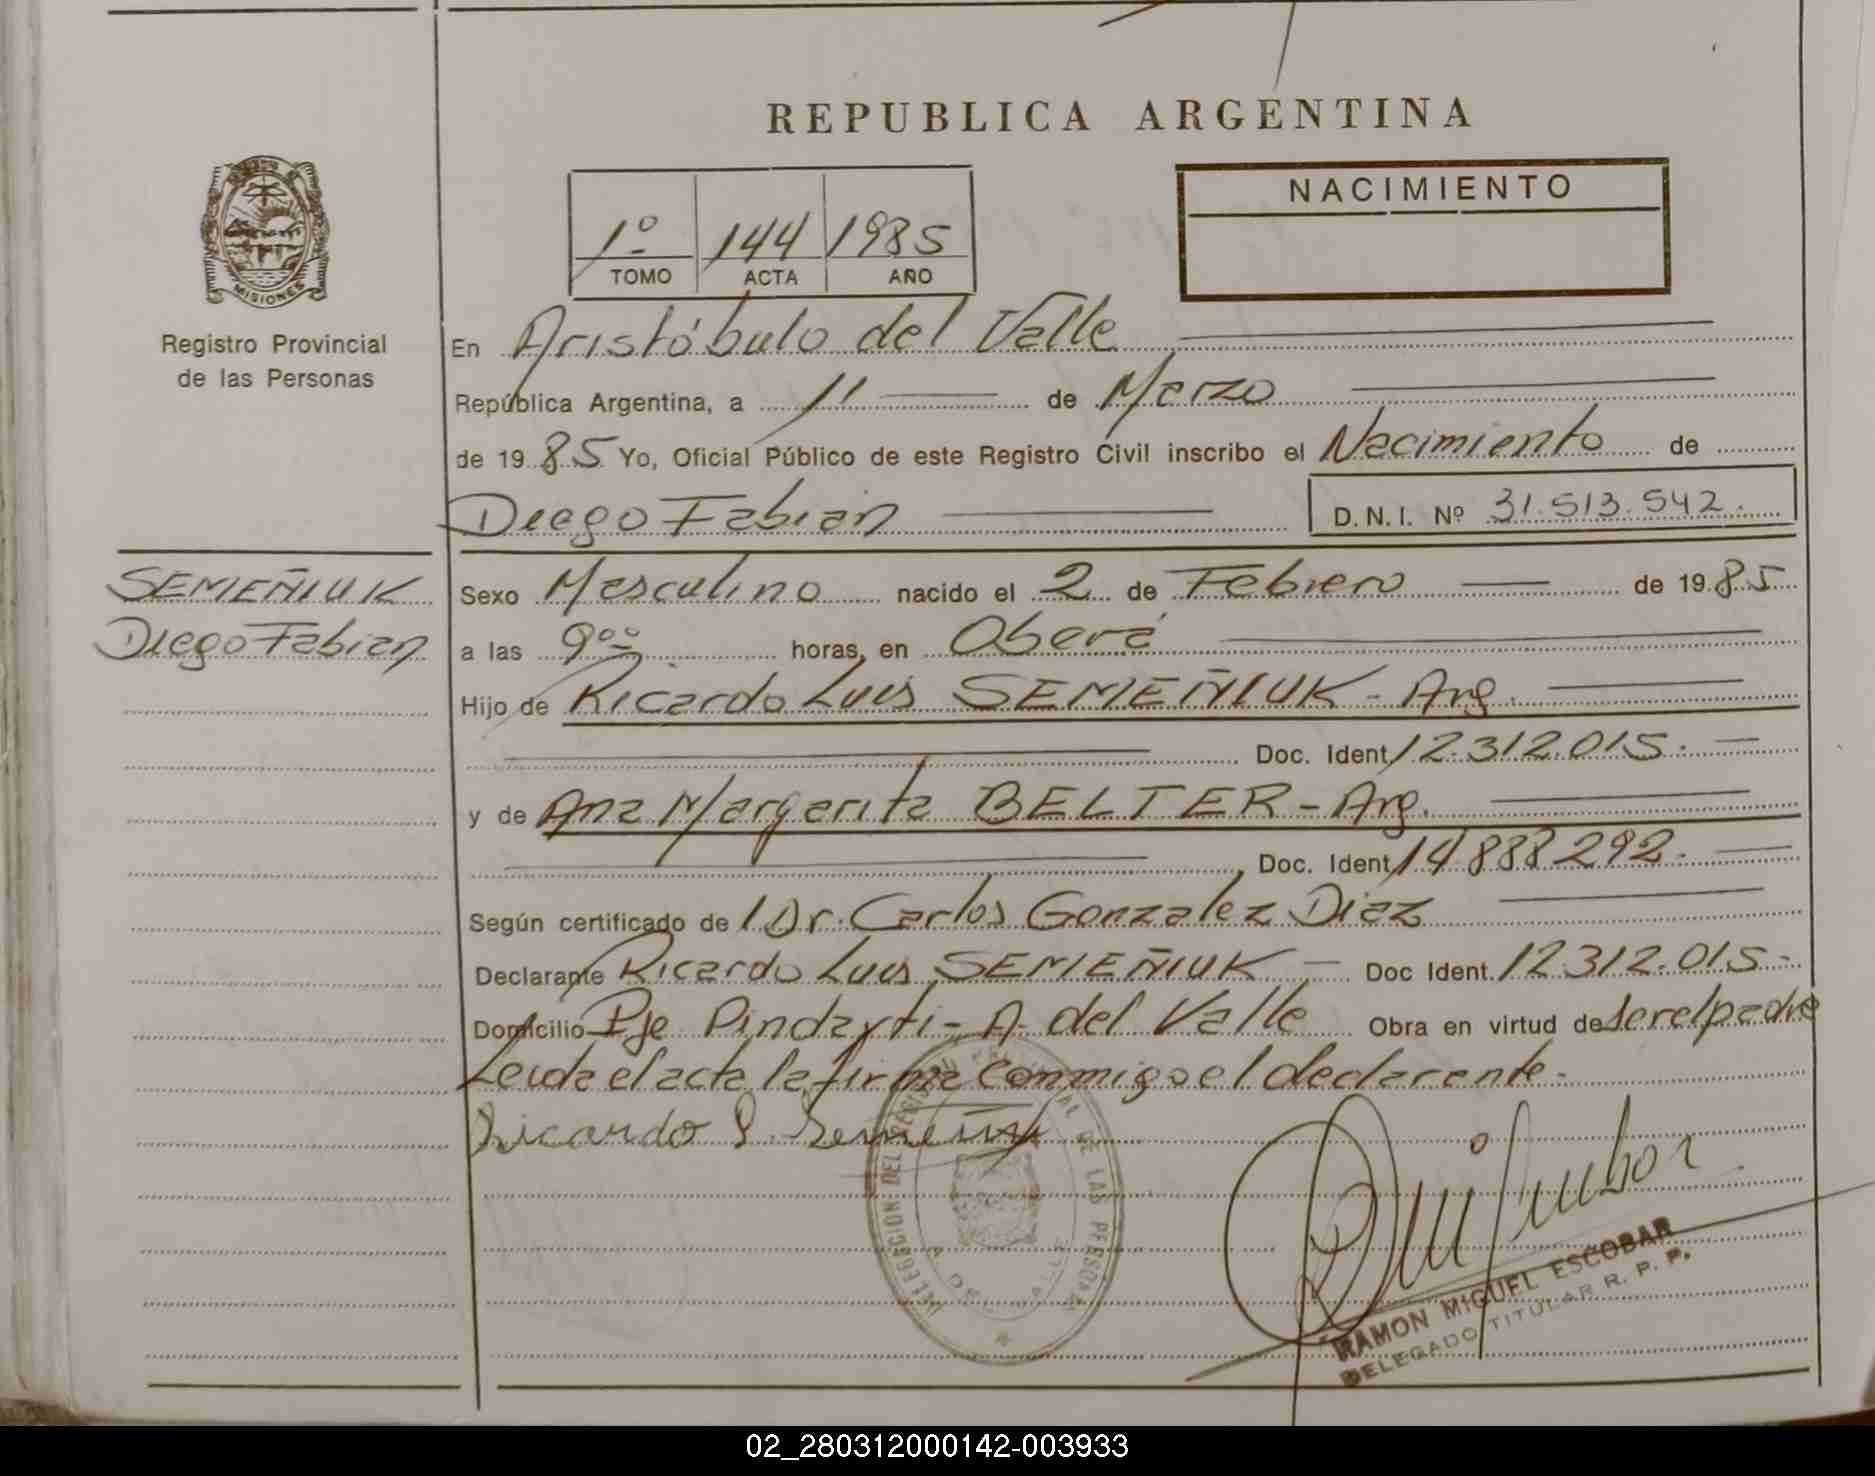 REPUBLICA ARGENTINA
1º 144 1985
TOMO ACTA AÑO
NACIMIENTO
MISIONES
Registro Provincial
de las Personas
En Aristóbulo del Valle
República Argentina, a 11 de Marzo
de 1985 Yo, Oficial Público de este Registro Civil inscribo el Nacimiento de
Diego Fabian D.N.I. Nº 31.513.542.
SEMEÑIUK
Diego Fabian
Sexo Masculino nacido el 2 de Febrero de 1985
a las 9ºº horas, en Oberá
Hijo de Ricardo Luis SEMEÑIUK - Arg.
Doc. Ident. 12.312.015.
y de Ana Margarita BELTER - Arg.
Doc. Ident. 14.888.292.
Según certificado de 1 Dr. Carlos Gonzalez Diaz
Declarante Ricardo Luis SEMEÑIUK - Doc Ident. 12.312.015-
Domicilio Pje Pindayti - A. del Valle Obra en virtud de ser el padre
Leida el acta la firma conmigo el declarante.
Ricardo L. Semeñiuk
DELEGACION DEL REGISTRO PROVINCIAL DE LAS PERSONAS
A. DEL VALLE
RAMON MIGUEL ESCOBAR
DELEGADO TITULAR R. P. P.
02_280312000142-003933